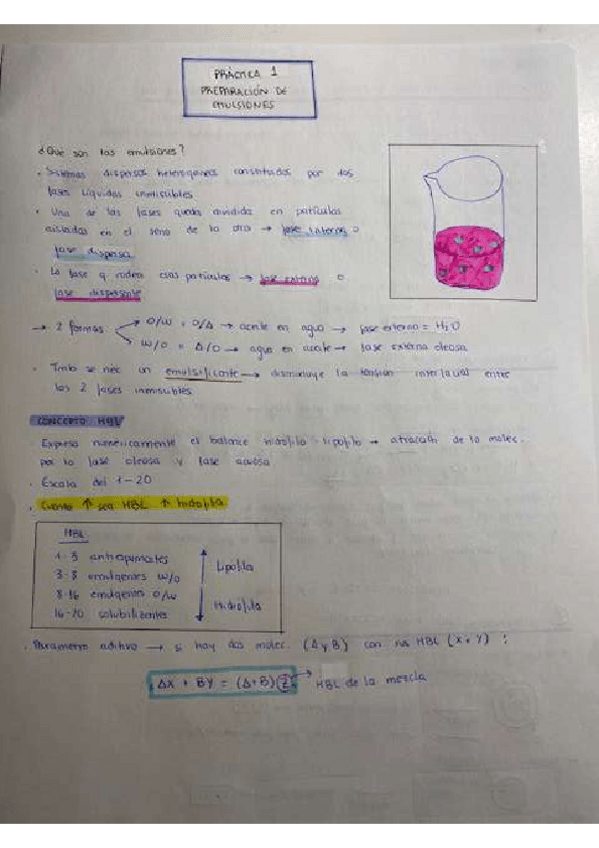 PRÁCTICA 1
PREPARACIÓN DE
EMULSIONES
¿Qué son las emulsiones?
· Sistemas dispersos heterogéneos constituidos por dos
fases líquidas inmiscibles
· Una de las fases queda dividida en partículas
aisladas en el seno de la otra → fase interna o
fase dispersa
· La fase q. rodea esas partículas → fase externa o
fase dispersante
→ 2 formas:
O/W = O/A → aceite en agua → fase externa = H2O
W/O = A/O → agua en aceite → fase externa oleosa
· Tmb se nec un emulsificante → disminuye la tensión interfacial entre
las 2 fases inmiscibles
CONCEPTO HBL
Expresa numéricamente el balance hidrófilo-lipófilo → atracción de la molec.
por la fase oleosa y fase acuosa
· Escala del 1-20
· Cuanto ↑ sea HBL ↑ hidrofilia
HBL
1-3 antiespumantes
3-8 emulgentes W/O
8-16 emulgentes O/W
16-20 solubilizantes
Lipófila
Hidrófila
· Parámetro aditivo → si hay dos molec. (A y B) con HBL (X e Y) :
AX + BY = (A+B) Z → HBL de la mezcla